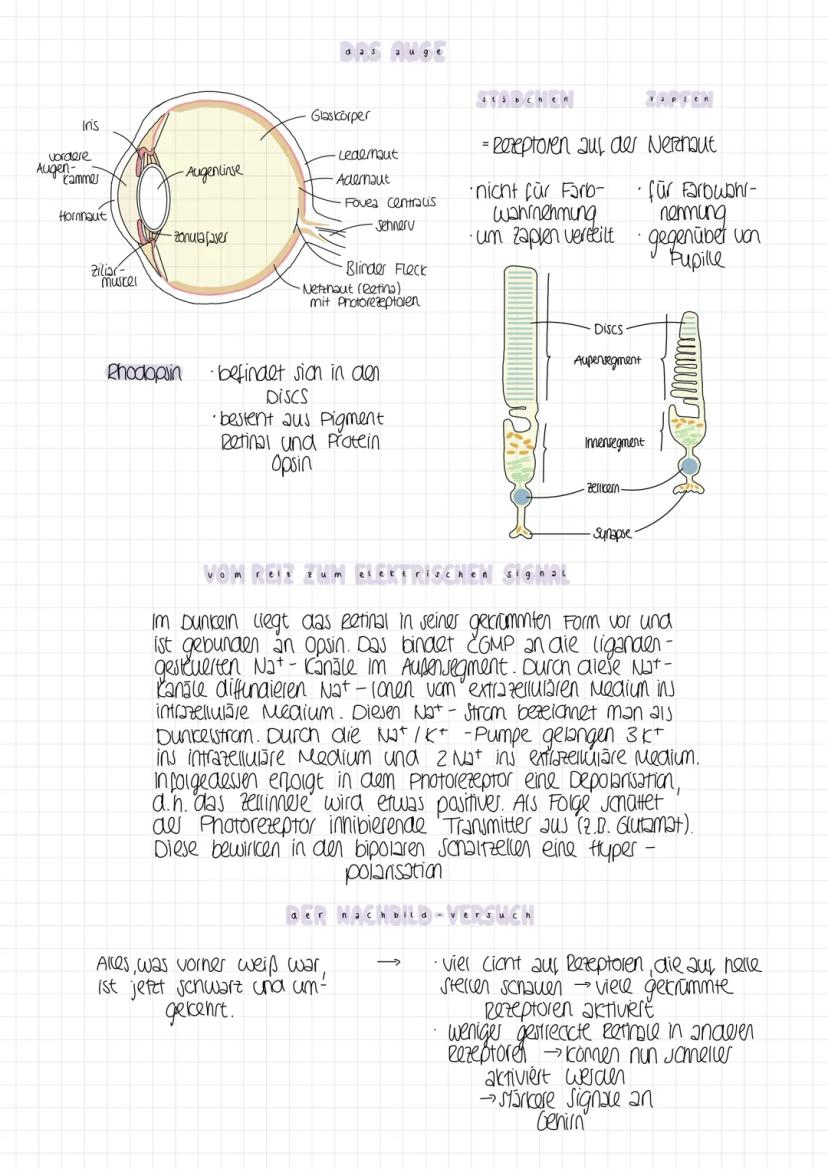 DAS AUGE
Iris
vordere
Augen-
kammer
Hornhaut
Ziliar-
muskel
Augenlinse
Zonulafaser
Glaskörper
Lederhaut
Aderhaut
Fovea Centralis
Sehnerv
Blinder Fleck
Netzhaut (Retina)
mit Photorezeptoren
STÄBCHEN
ZAPFEN
= Rezeptoren auf der Netzhaut
· nicht für Farb-
wahrnehmung
· um Zapfen verteilt
· für Farbwahr-
nehmung
· gegenüber von
Pupille
Discs
Außensegment
Innensegment
Zellkern
Synapse
Rhodopsin
· befindet sich in den
Discs
· besteht aus Pigment
Retinal und Protein
Opsin
VOM REIZ ZUM ELEKTRISCHEN SIGNAL
Im Dunkeln liegt das Retinal in seiner gekrümmten Form vor und
ist gebunden an Opsin. Das bindet cGMP an die liganden-
gesteuerten Na+ - Kanäle im Außensegment. Durch diese Na+ -
Kanäle diffundieren Na+ - Ionen vom extrazellulären Medium ins
intrazelluläre Medium. Diesen Na+ - Strom bezeichnet man als
Dunkelstrom. Durch die Na+ / K+ - Pumpe gelangen 3 K+
ins intrazelluläre Medium und 2 Na+ ins extrazelluläre Medium.
Infolgedessen erfolgt in dem Photorezeptor eine Depolarisation,
d.h. das Zellinnere wird etwas positiver. Als Folge schüttet
der Photorezeptor inhibierende Transmitter aus (z.B. Glutamat).
Diese bewirken in den bipolaren Schaltzellen eine Hyper -
polarisation
DER NACHBILD-VERSUCH
Alles, was vorher weiß war,
ist jetzt schwarz und um-
gekehrt.
→
· viel Licht auf Rezeptoren, die auf helle
Stellen schauen → viele gekrümmte
Rezeptoren aktiviert
· weniger gestreckte Retinale in anderen
Rezeptoren → können nun schneller
aktiviert werden
→ stärkere Signale an
Gehirn